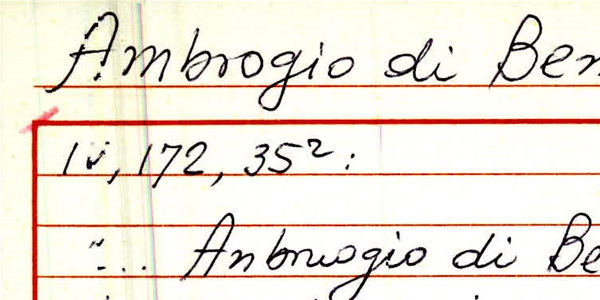 Ambrogio di Ben
172, 35²:
"... Anbruogio di Be